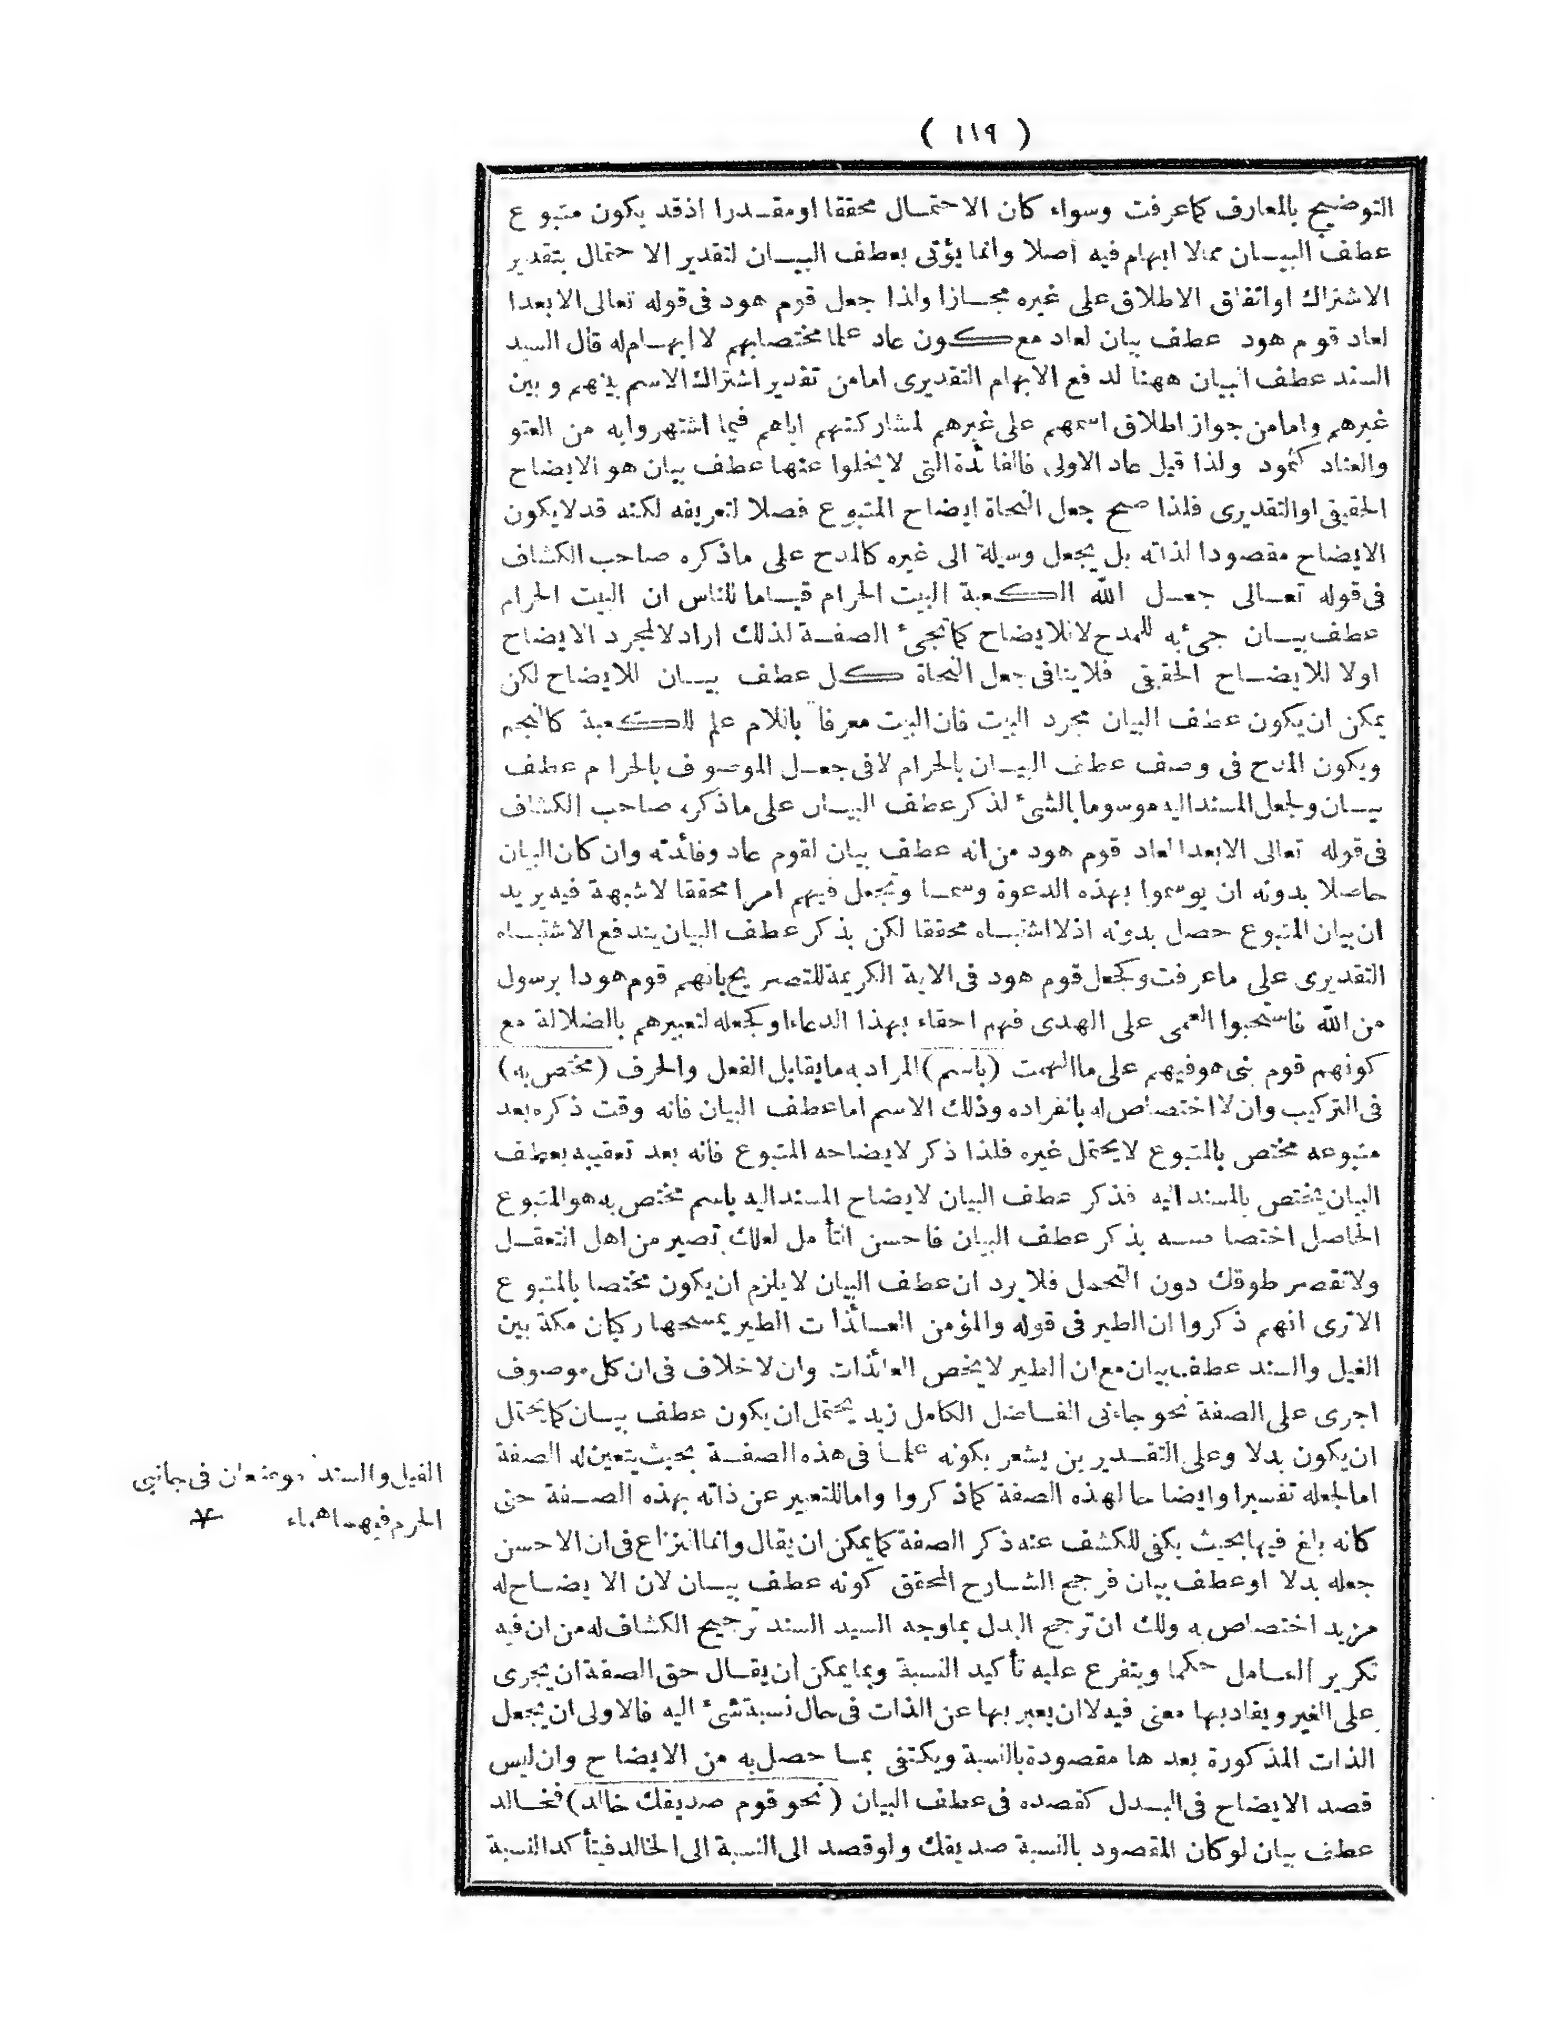 ( ١١٩ )
التوضيح بالمعارف كما عرفت وسواء كان الاحتمال محققا او مقدرا اذ قد يكون متبوع
عطف البيان ممالا ابهام فيه اصلا وانما يؤتى بعطف البيان لتقدير الاحتمال بتقدير
الاشتراك او اتفاق الاطلاق على غيره مجازا ولذا جعل قوم هود فى قوله تعالى الابعدا
لعاد قوم هود عطف بيان لعاد مع كون عاد علما مختصا بهم لا ابهام له قال السيد
السند عطف البيان ههنا لدفع الابهام التقديرى اما من تقدير اشتراك الاسم بينهم وبين
غيرهم واما من جواز اطلاق اسمهم على غيرهم لمشاركتهم اياهم فيما اشتهروا به من العتو
والعناد كثمود ولذا قيل عاد الاولى فالفائدة التى لا يخلوا عنها عطف بيان هو الايضاح
الحقيقى او التقديرى فلذا صح جعل النحاة ايضاح المتبوع فصلا لتعريفه لكنه قد لا يكون
الايضاح مقصودا لذاته بل يجعل وسيلة الى غيره كالمدح على ما ذكره صاحب الكشاف
فى قوله تعالى جعل الله الكعبة البيت الحرام قياما للناس ان البيت الحرام
عطف بيان جئ به للمدح لا للايضاح كما تجئ الصفة لذلك اراد لا لمجرد الايضاح
اولا للايضاح الحقيقى فلا ينافى جعل النحاة كل عطف بيان للايضاح لكن
يمكن ان يكون عطف البيان مجرد البيت فان البيت معرفا باللام علم للكعبة كالنجم
ويكون المدح فى وصف عطف البيان بالحرام لا فى جعل الموصوف بالحرام عطف
بيان ولجعل المسند اليه موسوما بالشئ لذكر عطف البيان على ما ذكره صاحب الكشاف
فى قوله تعالى الابعدا لعاد قوم هود من انه عطف بيان لقوم عاد وفائدته وان كان البيان
حاصلا بدونه ان يوسموا بهذه الدعوة وسما وتجعل فيهم امرا محققا لا شبهة فيه يريد
ان بيان المتبوع حصل بدونه اذ لا اشتباه محققا لكن بذكر عطف البيان يندفع الاشتباه
التقديرى على ما عرفت وكجعل قوم هود فى الاية الكريمة للتصريح بانهم قوم هودا برسول
من الله فاستحبوا العمى على الهدى فهم احقاء بهذا الدعاء او كجعله لتعبيرهم بالضلالة مع
كونهم قوم نبى هو فيهم على ما الهمت (باسم) المراد به ما يقابل الفعل والحرف (مختص به)
فى التركيب وان لا اختصاص له بانفراده وذلك الاسم اما عطف البيان فانه وقت ذكره بعد
متبوعه مختص بالمتبوع لا يحتمل غيره فلذا ذكر لايضاحه المتبوع فانه بعد تعقيبه بعطف
البيان يختص بالمسند اليه فذكر عطف البيان لايضاح المسند اليه باسم مختص به هو المتبوع
الحاصل اختصاصه بذكر عطف البيان فاحسن التأمل لعلك تصير من اهل التعقل
ولا تقصر طوقك دون التحمل فلا يرد ان عطف البيان لا يلزم ان يكون مختصا بالمتبوع
الاترى انهم ذكروا ان الطير فى قوله والمؤمن العائذات الطير يمسحها ركبان مكة بين
الغيل والسند عطف بيان مع ان الطير لا يخص العائذات وان لا خلاف فى ان كل موصوف
اجرى على الصفة نحو جاءنى الفاضل الكامل زيد يحتمل ان يكون عطف بيان كما يحتمل
ان يكون بدلا وعلى التقديرين يشعر بكونه علما فى هذه الصفة بحيث يتعين له الصفة
اما لجعله تفسيرا وايضاحا لهذه الصفة كما ذكروا واما للتعبير عن ذاته بهذه الصفة حتى
كانه بلغ فيها بحيث يكفى للكشف عنه ذكر الصفة كما يمكن ان يقال وانما النزاع فى ان الاحسن
جعله بدلا او عطف بيان فرجح الشارح المحقق كونه عطف بيان لان الايضاح له
مزيد اختصاص به ولك ان ترجح البدل بما وجه السيد السند ترجيح الكشاف له من ان فيه
تكرير العامل حكما ويتفرع عليه تأكيد النسبة وبما يمكن ان يقال حق الصفة ان يجرى
على الغير ويفاد بها معنى فيه لا ان يعبر بها عن الذات فى حال نسبة شئ اليه فالاولى ان يجعل
الذات المذكورة بعدها مقصودة بالنسبة ويكتفى بما حصل به من الايضاح وان ليس
قصد الايضاح فى البدل كقصده فى عطف البيان (نحو قوم صديقك خالد) فخالد
عطف بيان لو كان المقصود بالنسبة صديقك ولو قصد الى النسبة الى الخالد فيتأكد النسبة
الغيل والسند موضعان فى جانبى
الحرم فيهما الماء